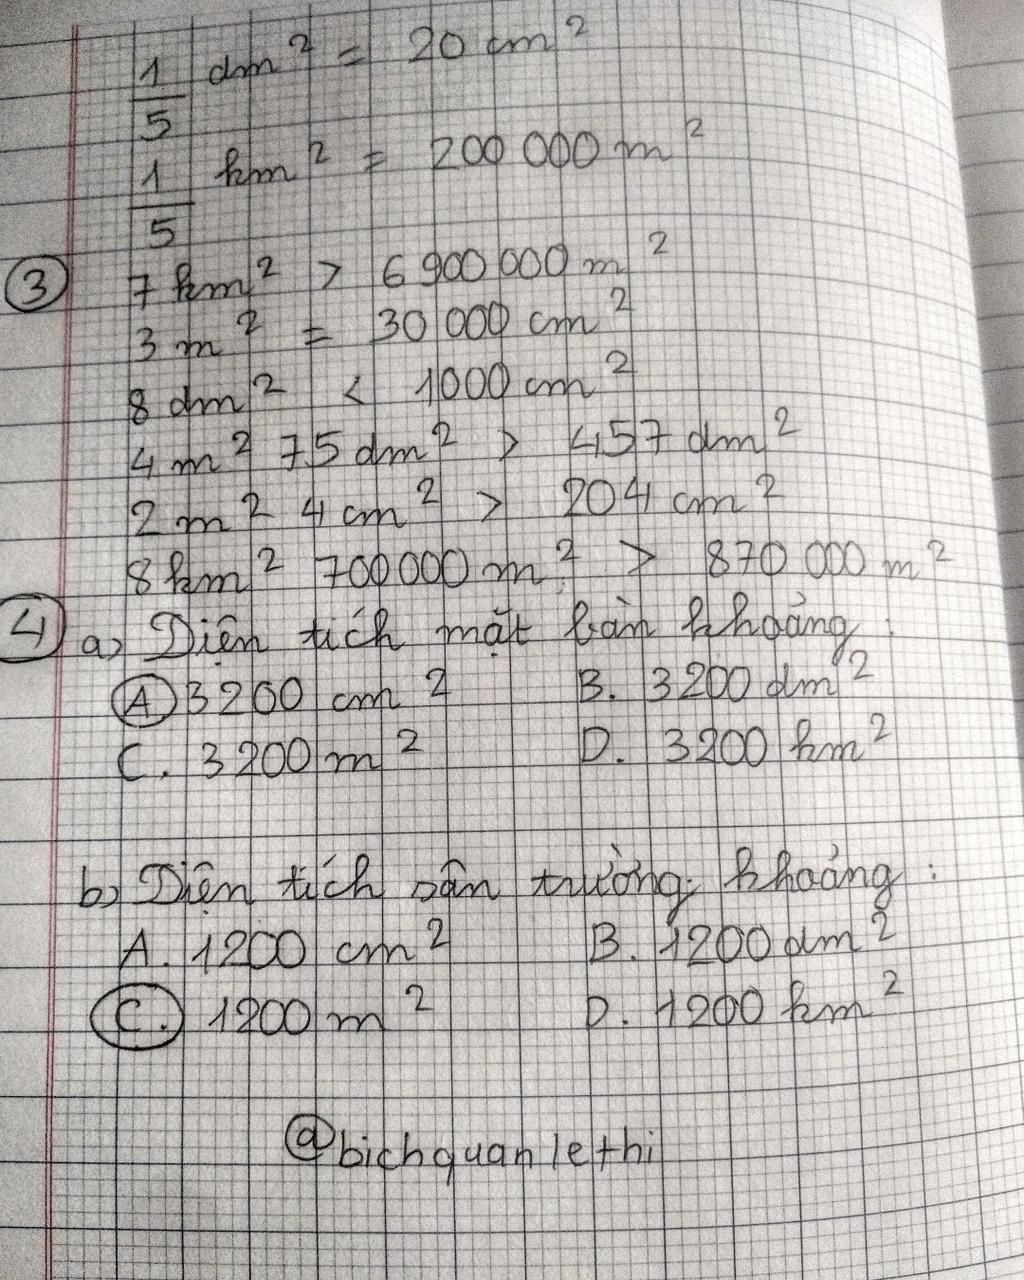 1/5 dm² = 20 cm²
1/5 km² = 200 000 m²
③ 7 km² > 6 900 000 m²
3 m² = 30 000 cm²
8 dm² < 1000 cm²
4 m² 75 dm² > 457 dm²
2 m² 4 cm² > 204 cm²
8 km² 700 000 m² > 870 000 m²
④ a) Diện tích mặt bàn khoảng :
Ⓐ 3200 cm² B. 3200 dm²
C. 3200 m² D. 3200 km²
b) Diện tích sân trường khoảng :
A. 1200 cm² B. 1200 dm²
Ⓒ. 1200 m² D. 1200 km²
@bichquanlethi